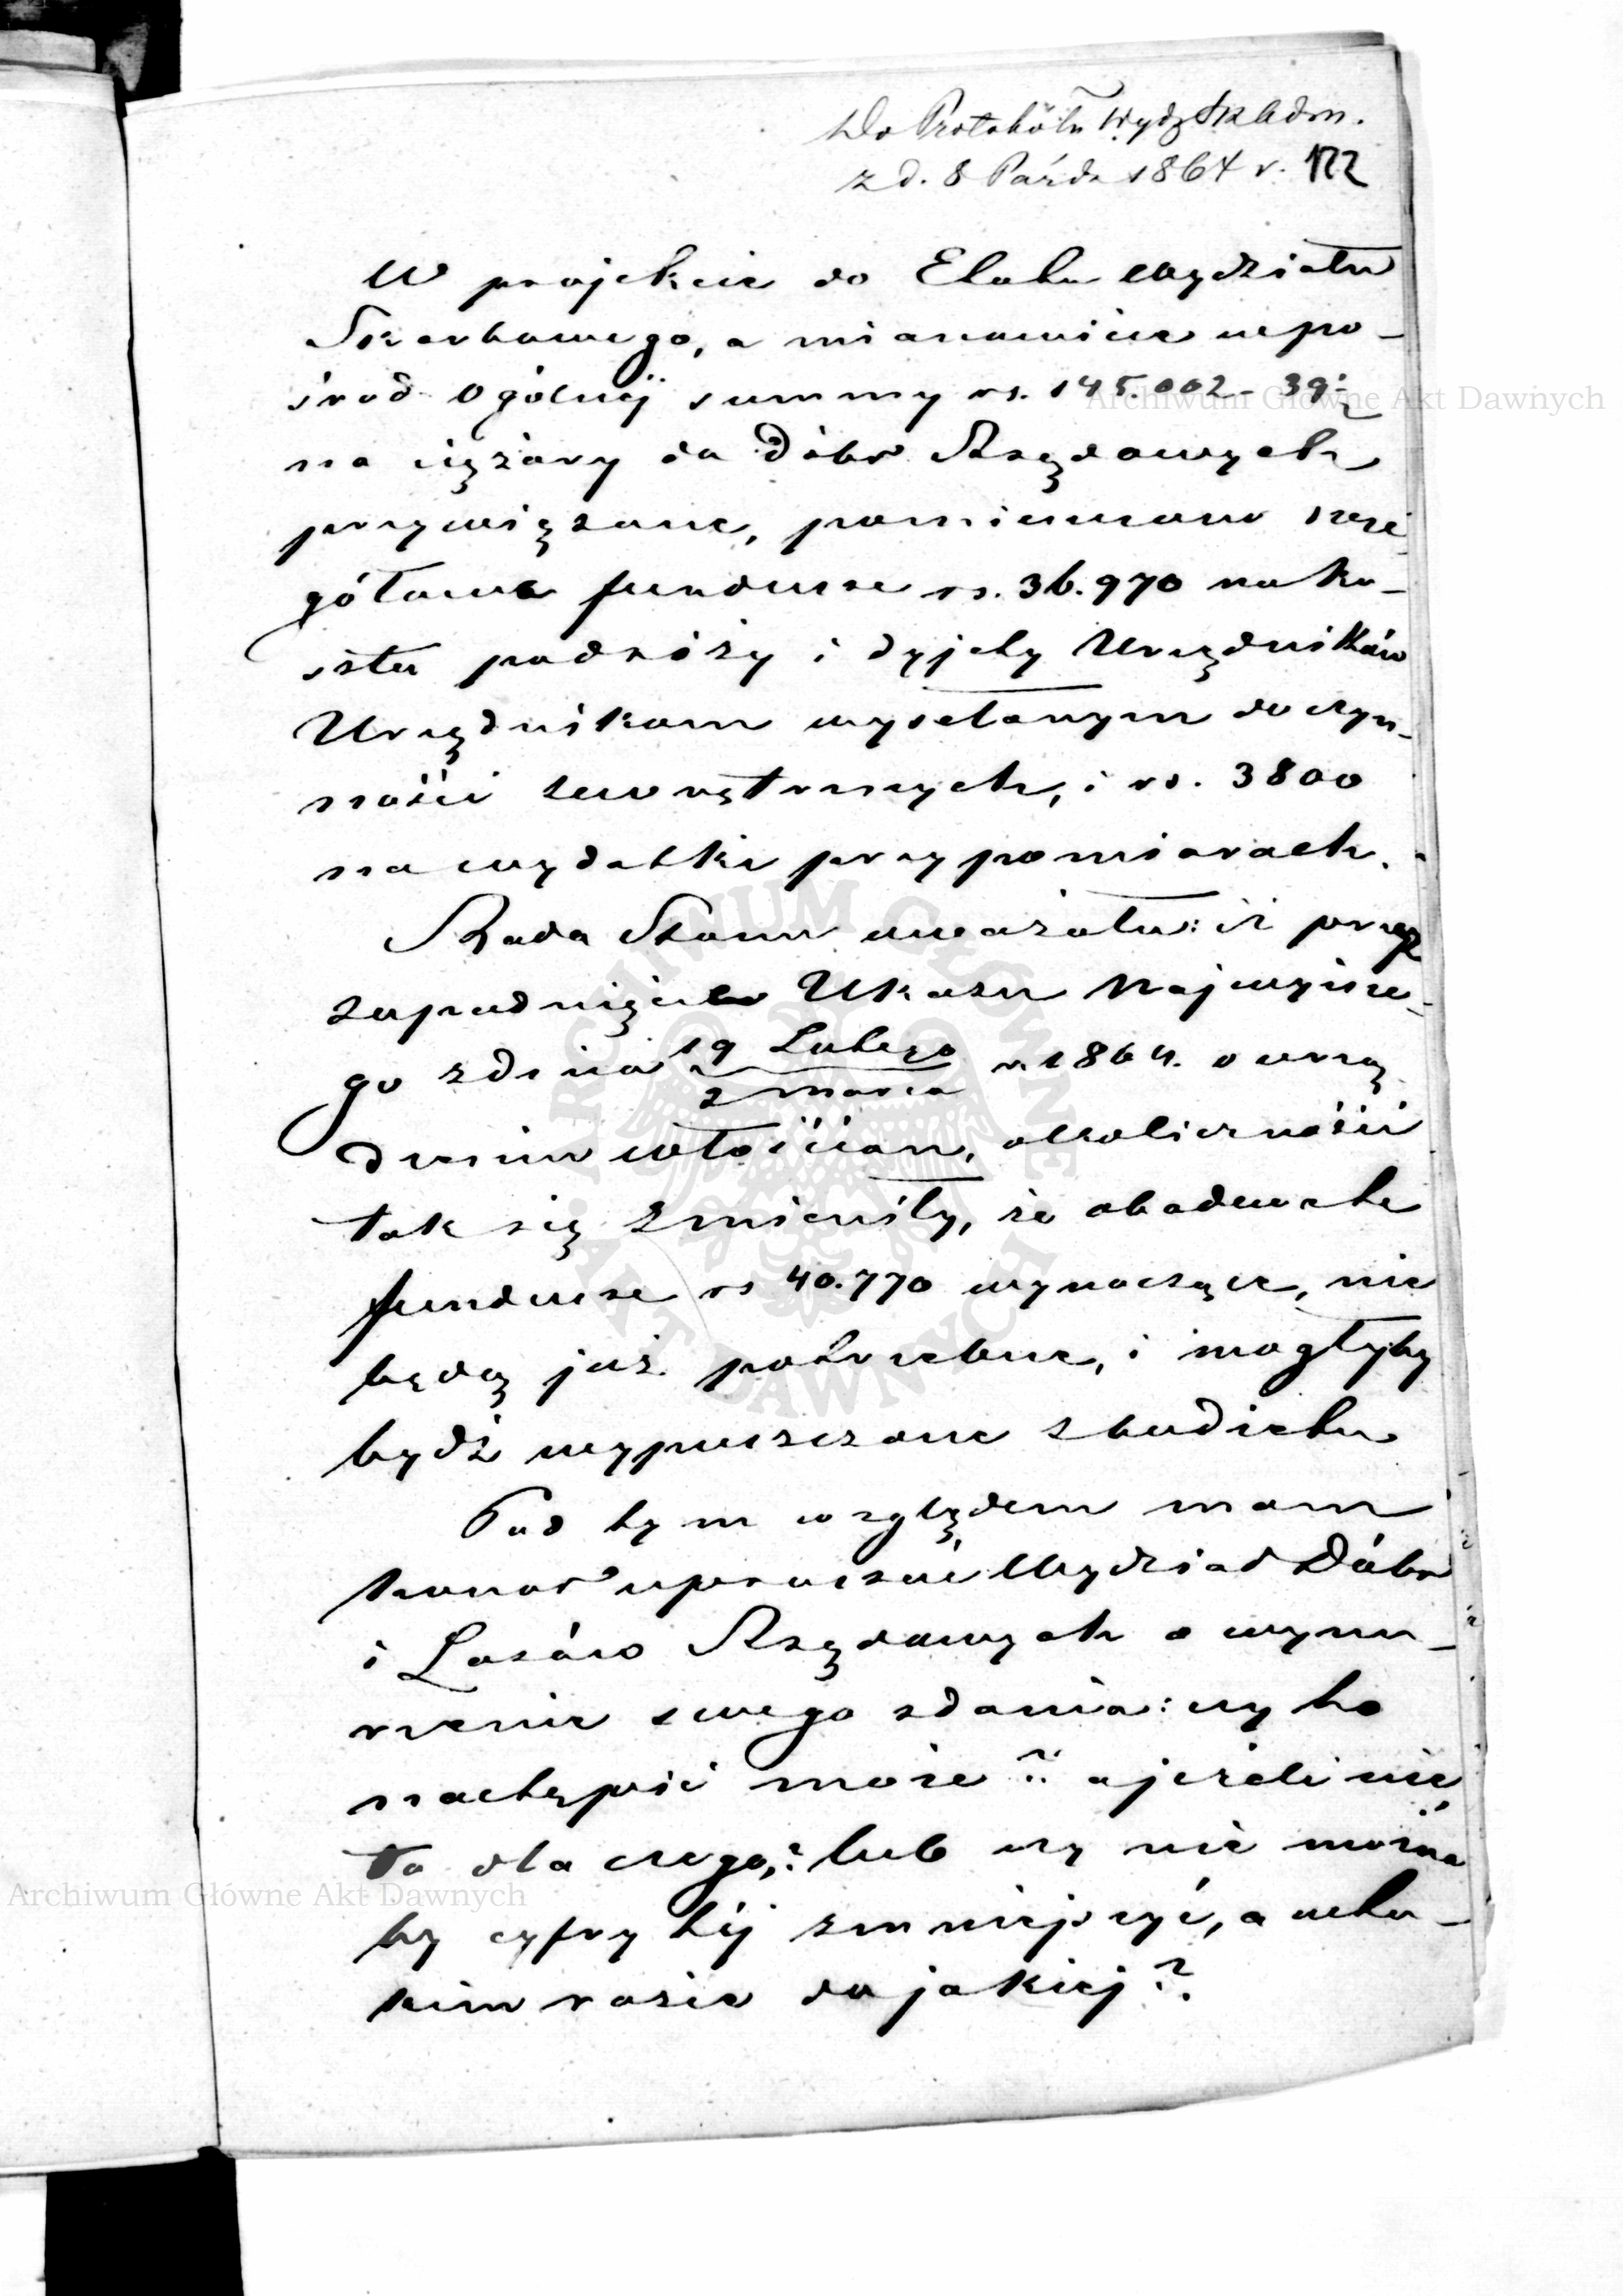 Do Protokółu Wydz Sk Adm.
z d. 8 Paźdz 1864 r. 122
W projekcie do Etatu Wydziału
Skarbowego, a mianowicie wpo-
śród Ogólnéj summy rs. 145.002 - 39½
na ciężary do Dóbr Rządowych
przywiązane, pomieszczono szcze
gółowe fundusze rs. 36.970 na ko-
szta podróży i dyjety Urzędników
Urzędnikom wysełanym do czyn-
ności zewnętrznych, i rs. 3800
na wydatki przy pomiarach.
Rada Stanu uważała: iż przez
zapadnięcie Ukazu Najwyższe-
go z dnia 19 Lutego
2 marca r. 1864. o urzą
dzeniu włościan, okoliczności
tak się zmieniły, że obadwa te
fundusze rs 40.770 wynoszące, nie
będą już potrzebne, i mogłyby
bydź wypuszczone z budżetu
Pod tym względem mam
honor upraszać Wydział Dóbr
i Lasów Rządowych o wynu-
rzenie swego zdania: czy to
nastąpić może? a jeżeli nie,
to dla czego,? lub czy nie można
by cyfry téj zmniejszyć, a w ta-
kim razie do jakiej?
Archiwum Główne Akt Dawnych
Archiwum Główne Akt Dawnych
ARCHIWUM GŁÓWNE
AKT DAWNYCH